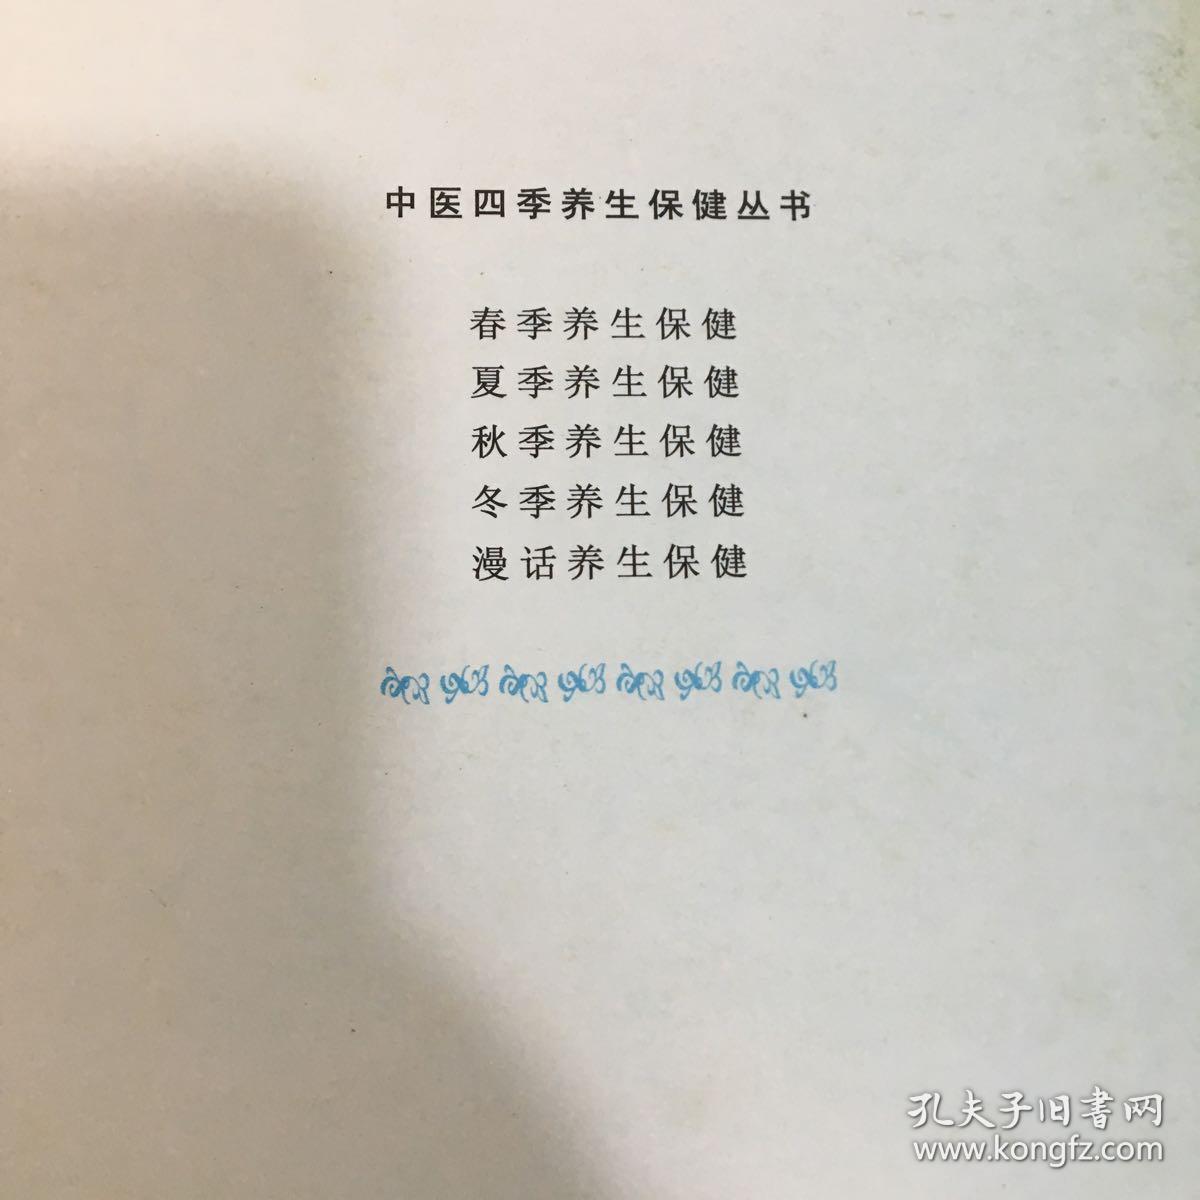 中医四季养生保健丛书
春季养生保健
夏季养生保健
秋季养生保健
冬季养生保健
漫话养生保健
孔夫子旧书网
www.kongfz.com